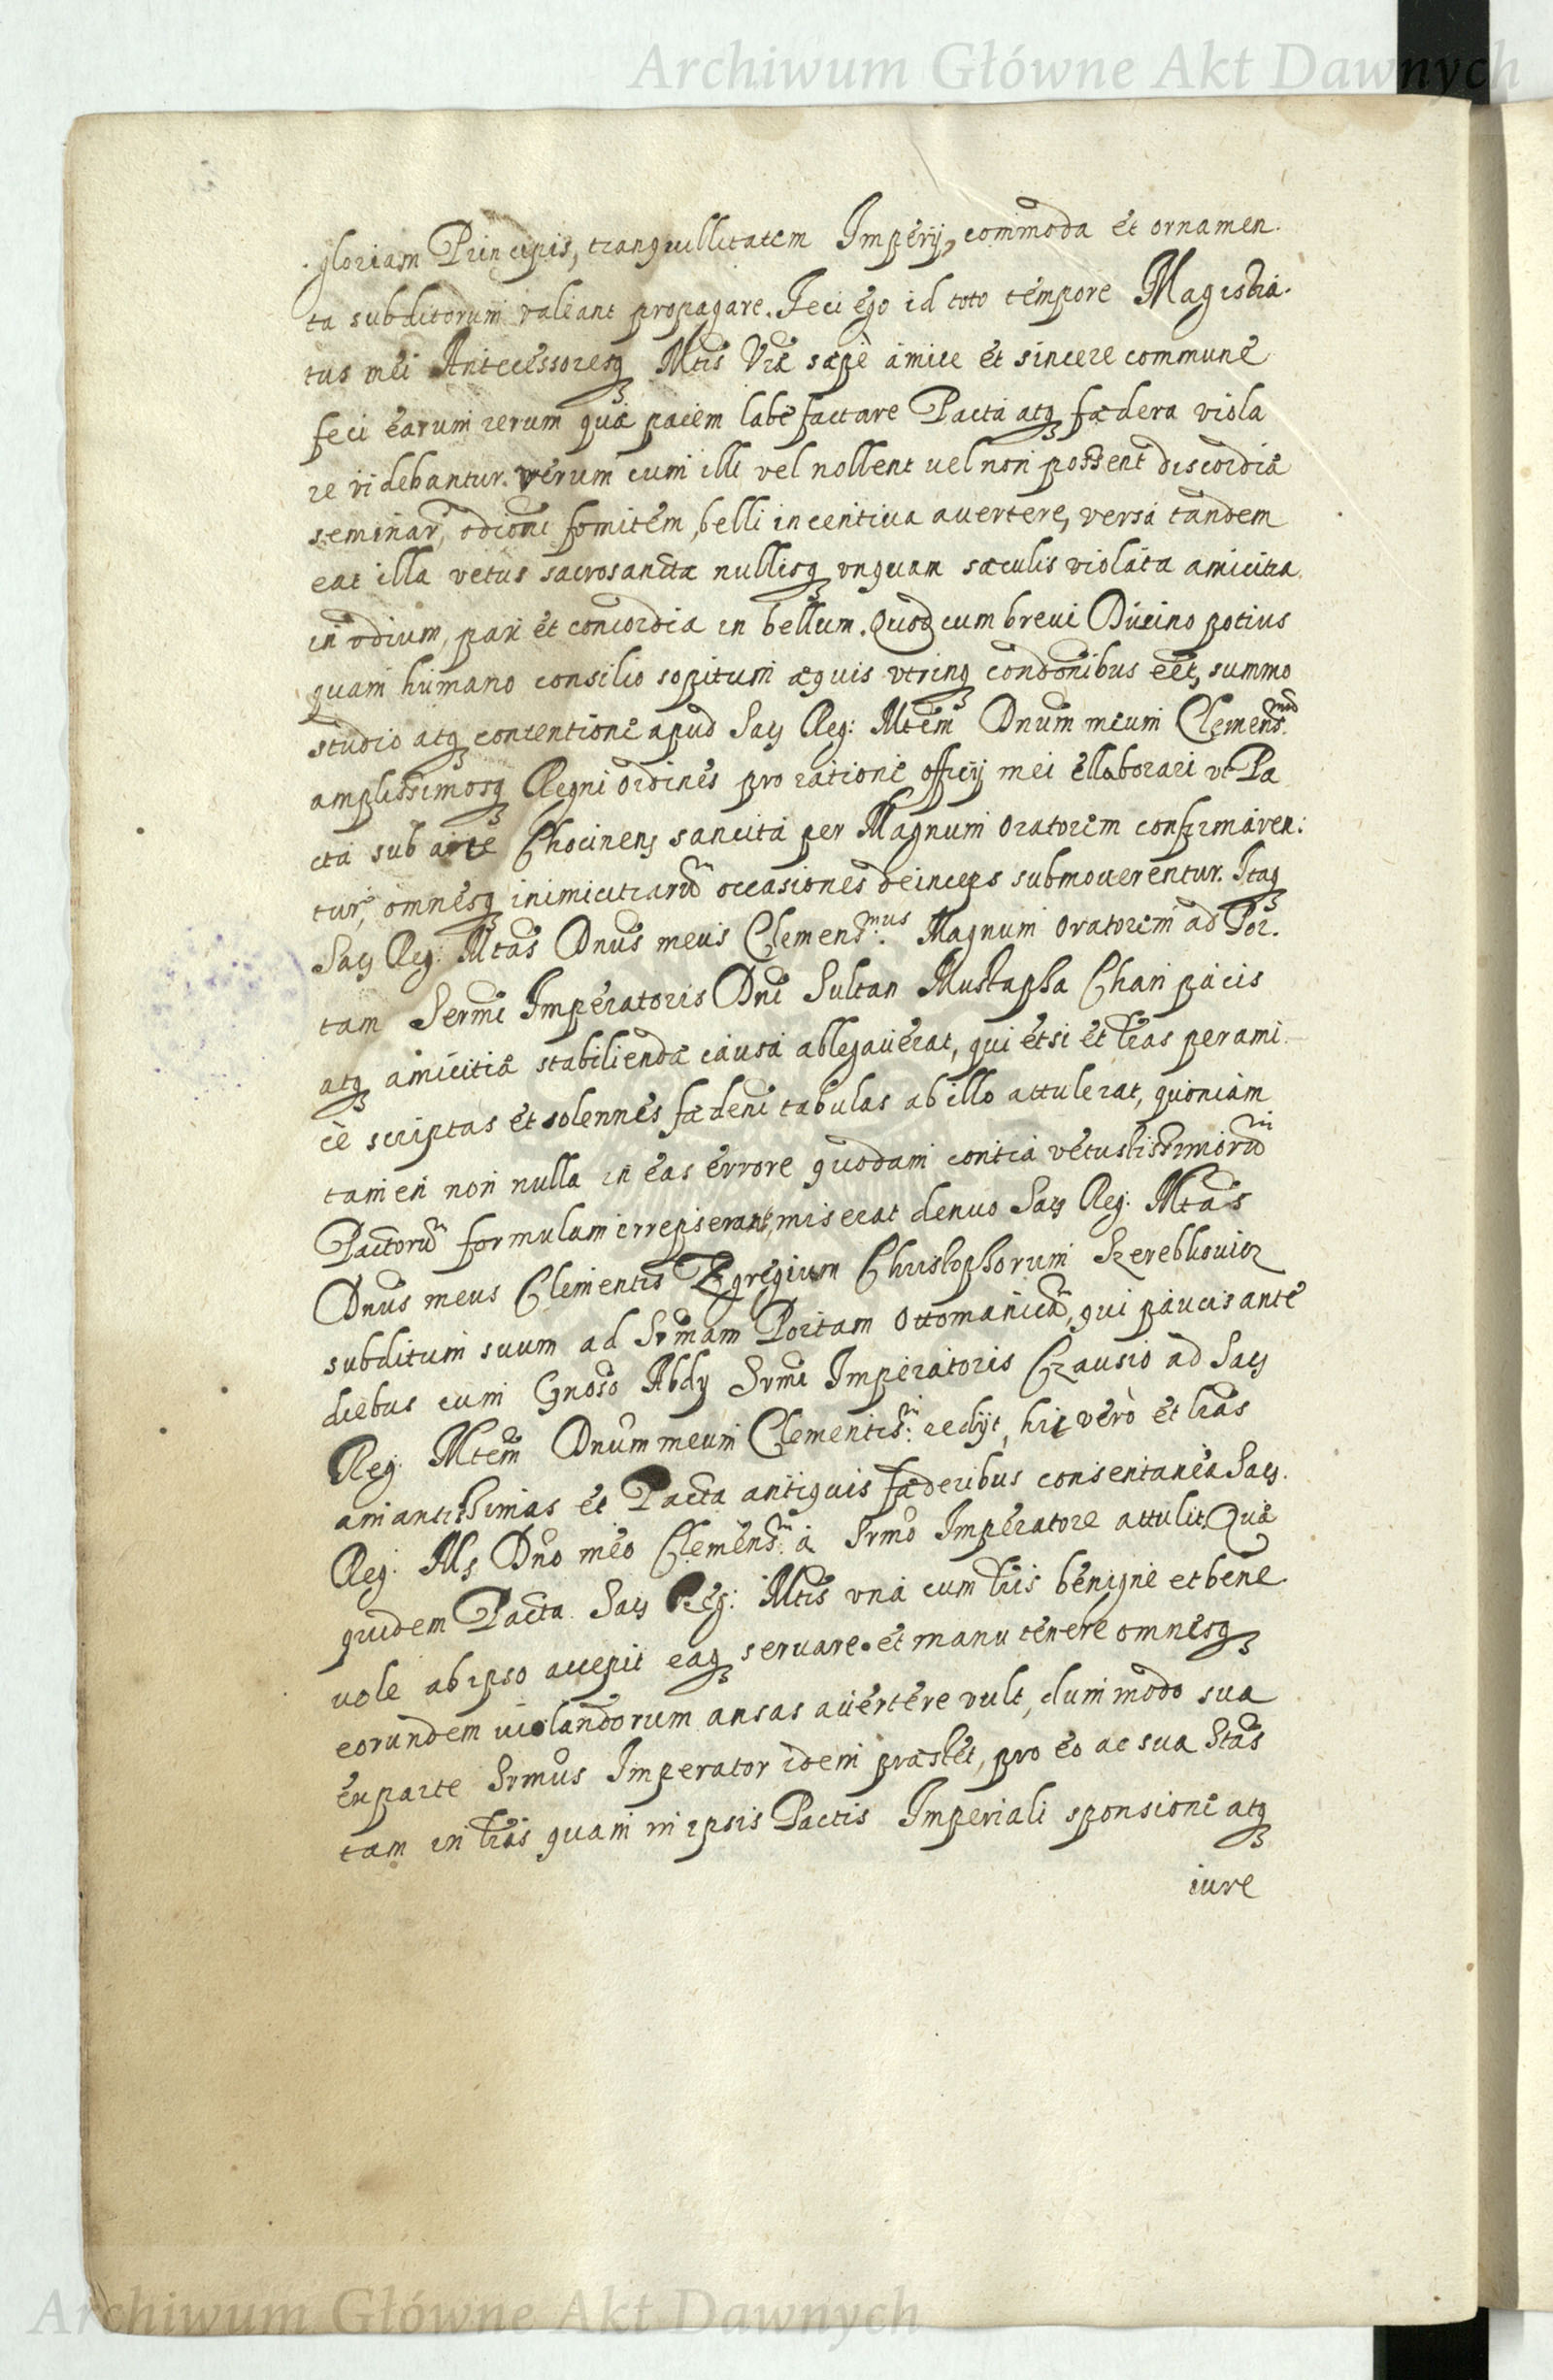 Archiwum Główne Akt Dawnych
gloriam Principis, tranquillitatem Imperij, commoda et ornamen
ta subditorum valeant propagare. Feci ego id toto tempore Magistra
tus mei Antecessoresq Mtis Vræ sæpè amice et sincere commune
feci earum rerum quæ pacem labefactare Pacta atq fædera viola
re videbantur. verum cum illi vel nollent uel non possent discordiæ
seminar, odionẽ fomitem, belli incentiua auertere, versa tandem
eat illa vetus sacrosancta nullisq vnquam sæculis violata amicitia
in odium, pax et concordia in bellum. Quod cum breui Diuino potius
quam humano consilio sopitum æquis vtrinq condõnibus eẽt, summo
studio atq contentione apud Sacs Reg: Mtem Dnum meum Clemens:mũ
amplissimosq Regni ordines pro ratione officij mei ellaborari vt Pa
cta sub arce Chocinens sancita per Magnum Oratorem confirmaren:
tur, omnesq inimicitiarũ occasiones deinceps submouerentur. Itaq
Sacs Reg: Mtas Dnus meus Clemens:mus Magnum Oratorem ad Por.
tam Sermi Imperatoris Dni Sultan Mustapha Chan pacis
atq amicitiæ stabiliendæ causa ablegauerat, qui etsi et lras perami
cè scriptas et solennes fædeni tabulas ab illo attulerat, quoniam
tamen non nulla in eas errore quodam contra vetustissimorũ
Pactorũ formulam irrepserant, miserat denuo Sacs Reg: Mtas
Dnus meus Clementis Egregium Christophorum Szerebkouicz
subditum suum ad Srmam Portam Ottomanicã, qui paucis ante
diebus cum Gnoso Abdy Srmi Imperatoris Czausio ad Sacs
Reg: Mtem Dnum meum Clementis:m redijt, hic verò et lras
amantissimas et Pacta antiquis fæderibus consentanea Sacs.
Reg: Mts Dño meo Clemens:m à Srmo Imperatore attulit. Quæ
quidem Pacta Sacs Reg: Mtis vna cum lris benigne et bene
uole ab ipso accepit eaq seruare et manu tenere omnesq
eorundem uiolandorum ansas auertere vult, dum modo sua
ex parte Srmus Imperator idem præstet, pro eo ac sua Stas
tam in lras quam in ipsis Pactis Imperiali sponsione atq
iure
Archiwum Główne Akt Dawnych